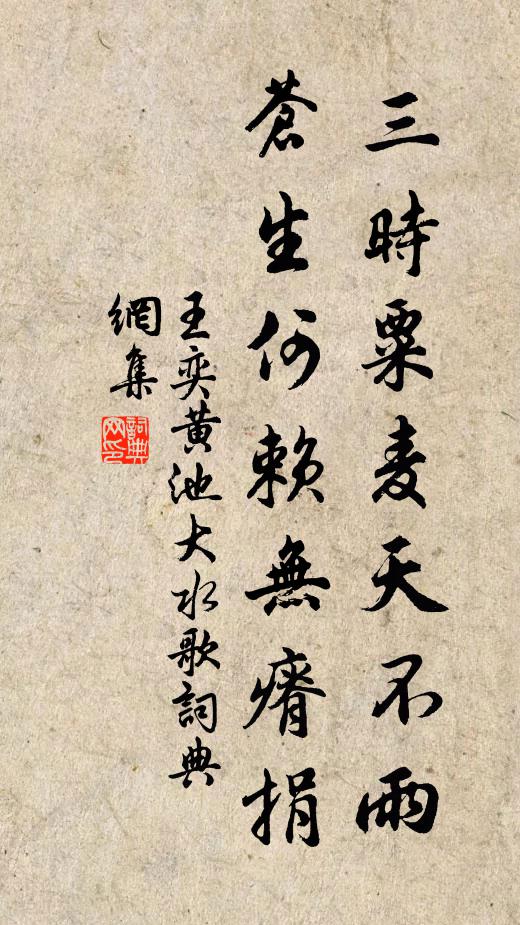 三時粟麦天不雨
蒼生何賴無瘠捐
王奕黄池大水歌詞典
網集
詞典
网印